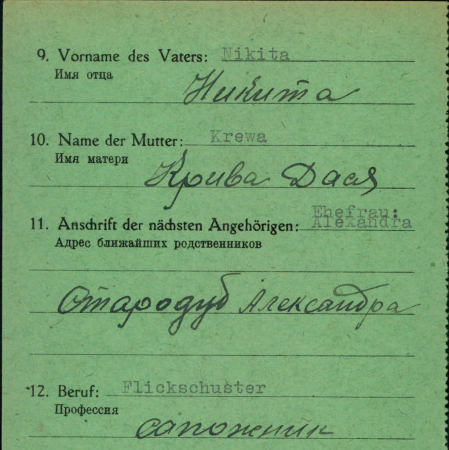 9. Vorname des Vaters: Nikita
Имя отца
Никита
10. Name der Mutter: Krewa
Имя матери
Крива Дася
Ehefrau:
11. Anschrift der nächsten Angehörigen: Alexandra
Адрес ближайших родственников
Стародуб Александра
12. Beruf: Flickschuster
Профессия
сапожник